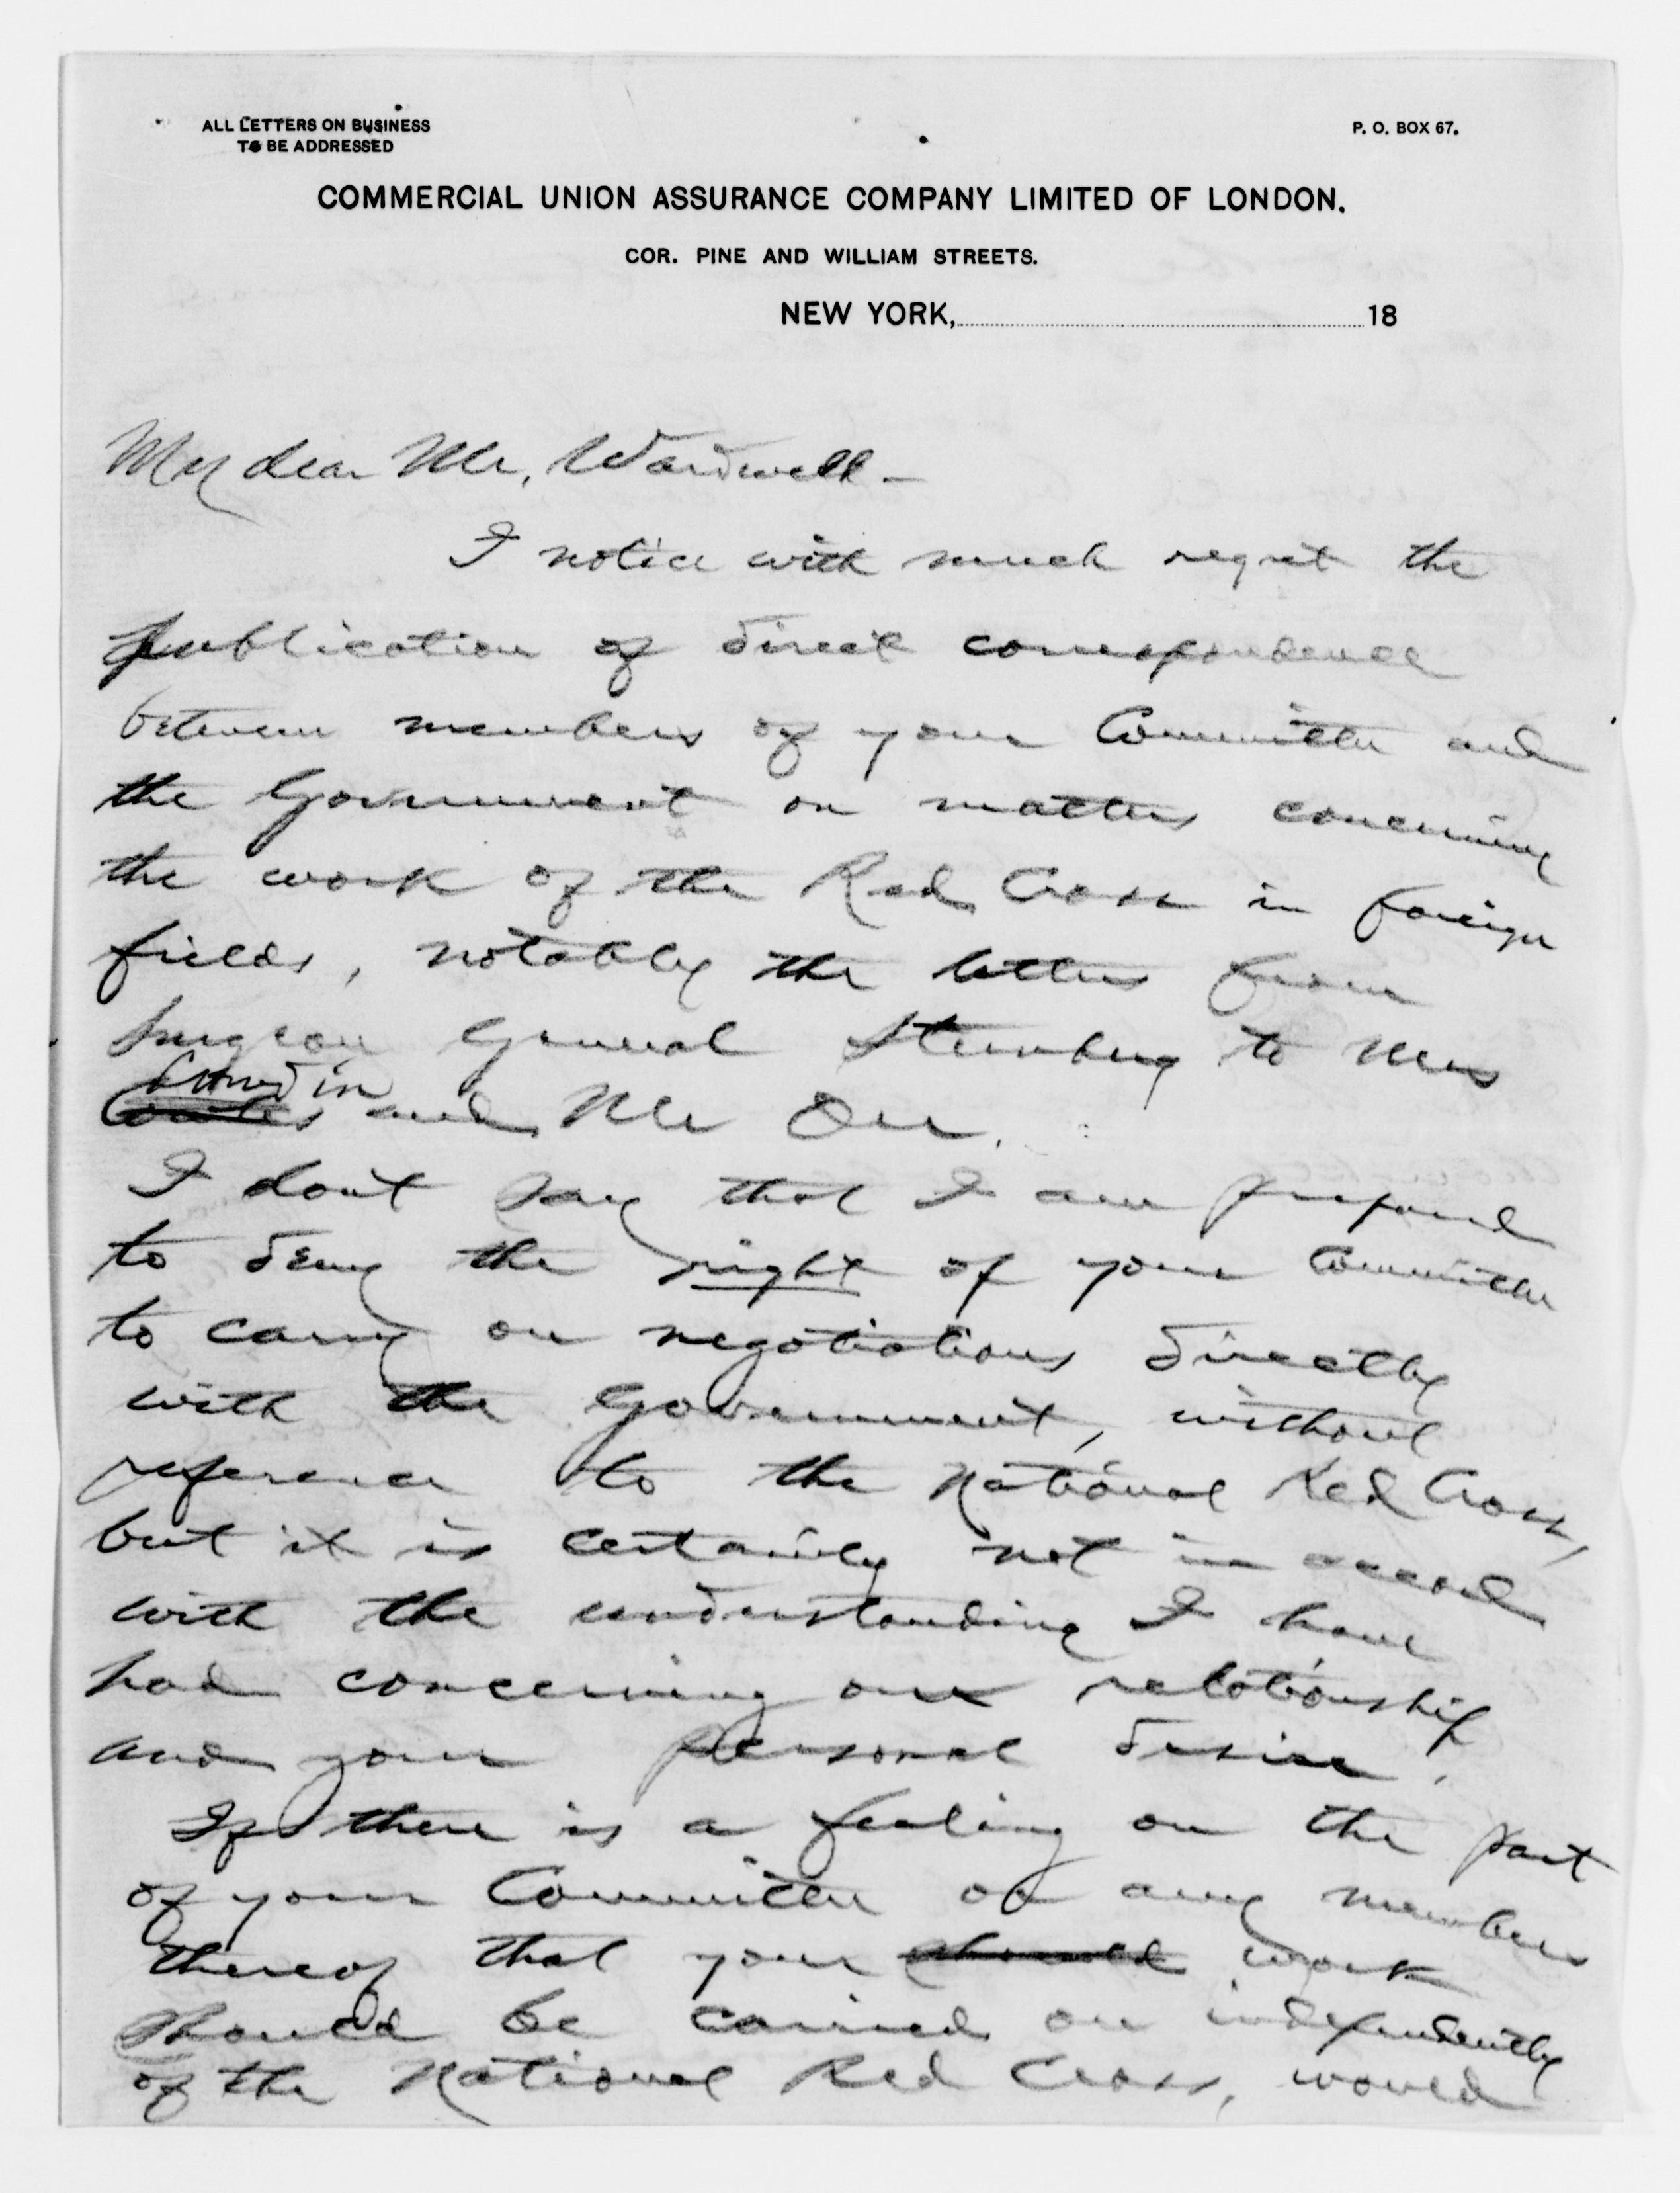 ALL LETTERS ON BUSINESS
TO BE ADDRESSED
P. O. BOX 67.
COMMERCIAL UNION ASSURANCE COMPANY LIMITED OF LONDON.
COR. PINE AND WILLIAM STREETS.
NEW YORK, 18
My dear Mr, Wardwell -
I notice with much regret the
publication of direct correspondence
between members of your Committee and
the Government on matters concerning
the work of the Red Cross in foreign
fields, notably the letters from
Surgeon General Sternberg to Mrs
and Mr Orr.
I don't say that I am prepared
to deny the right of your Committee
to carry on negotiations directly
with the Government, without
reference to the National Red Cross,
but it is certainly not in accord
with the understanding I have
had concerning our relationship
and your personal desire.
If there is a feeling on the part
of your Committee or any members
thereof that your should work
should be carried on independently
of the National Red Cross, would